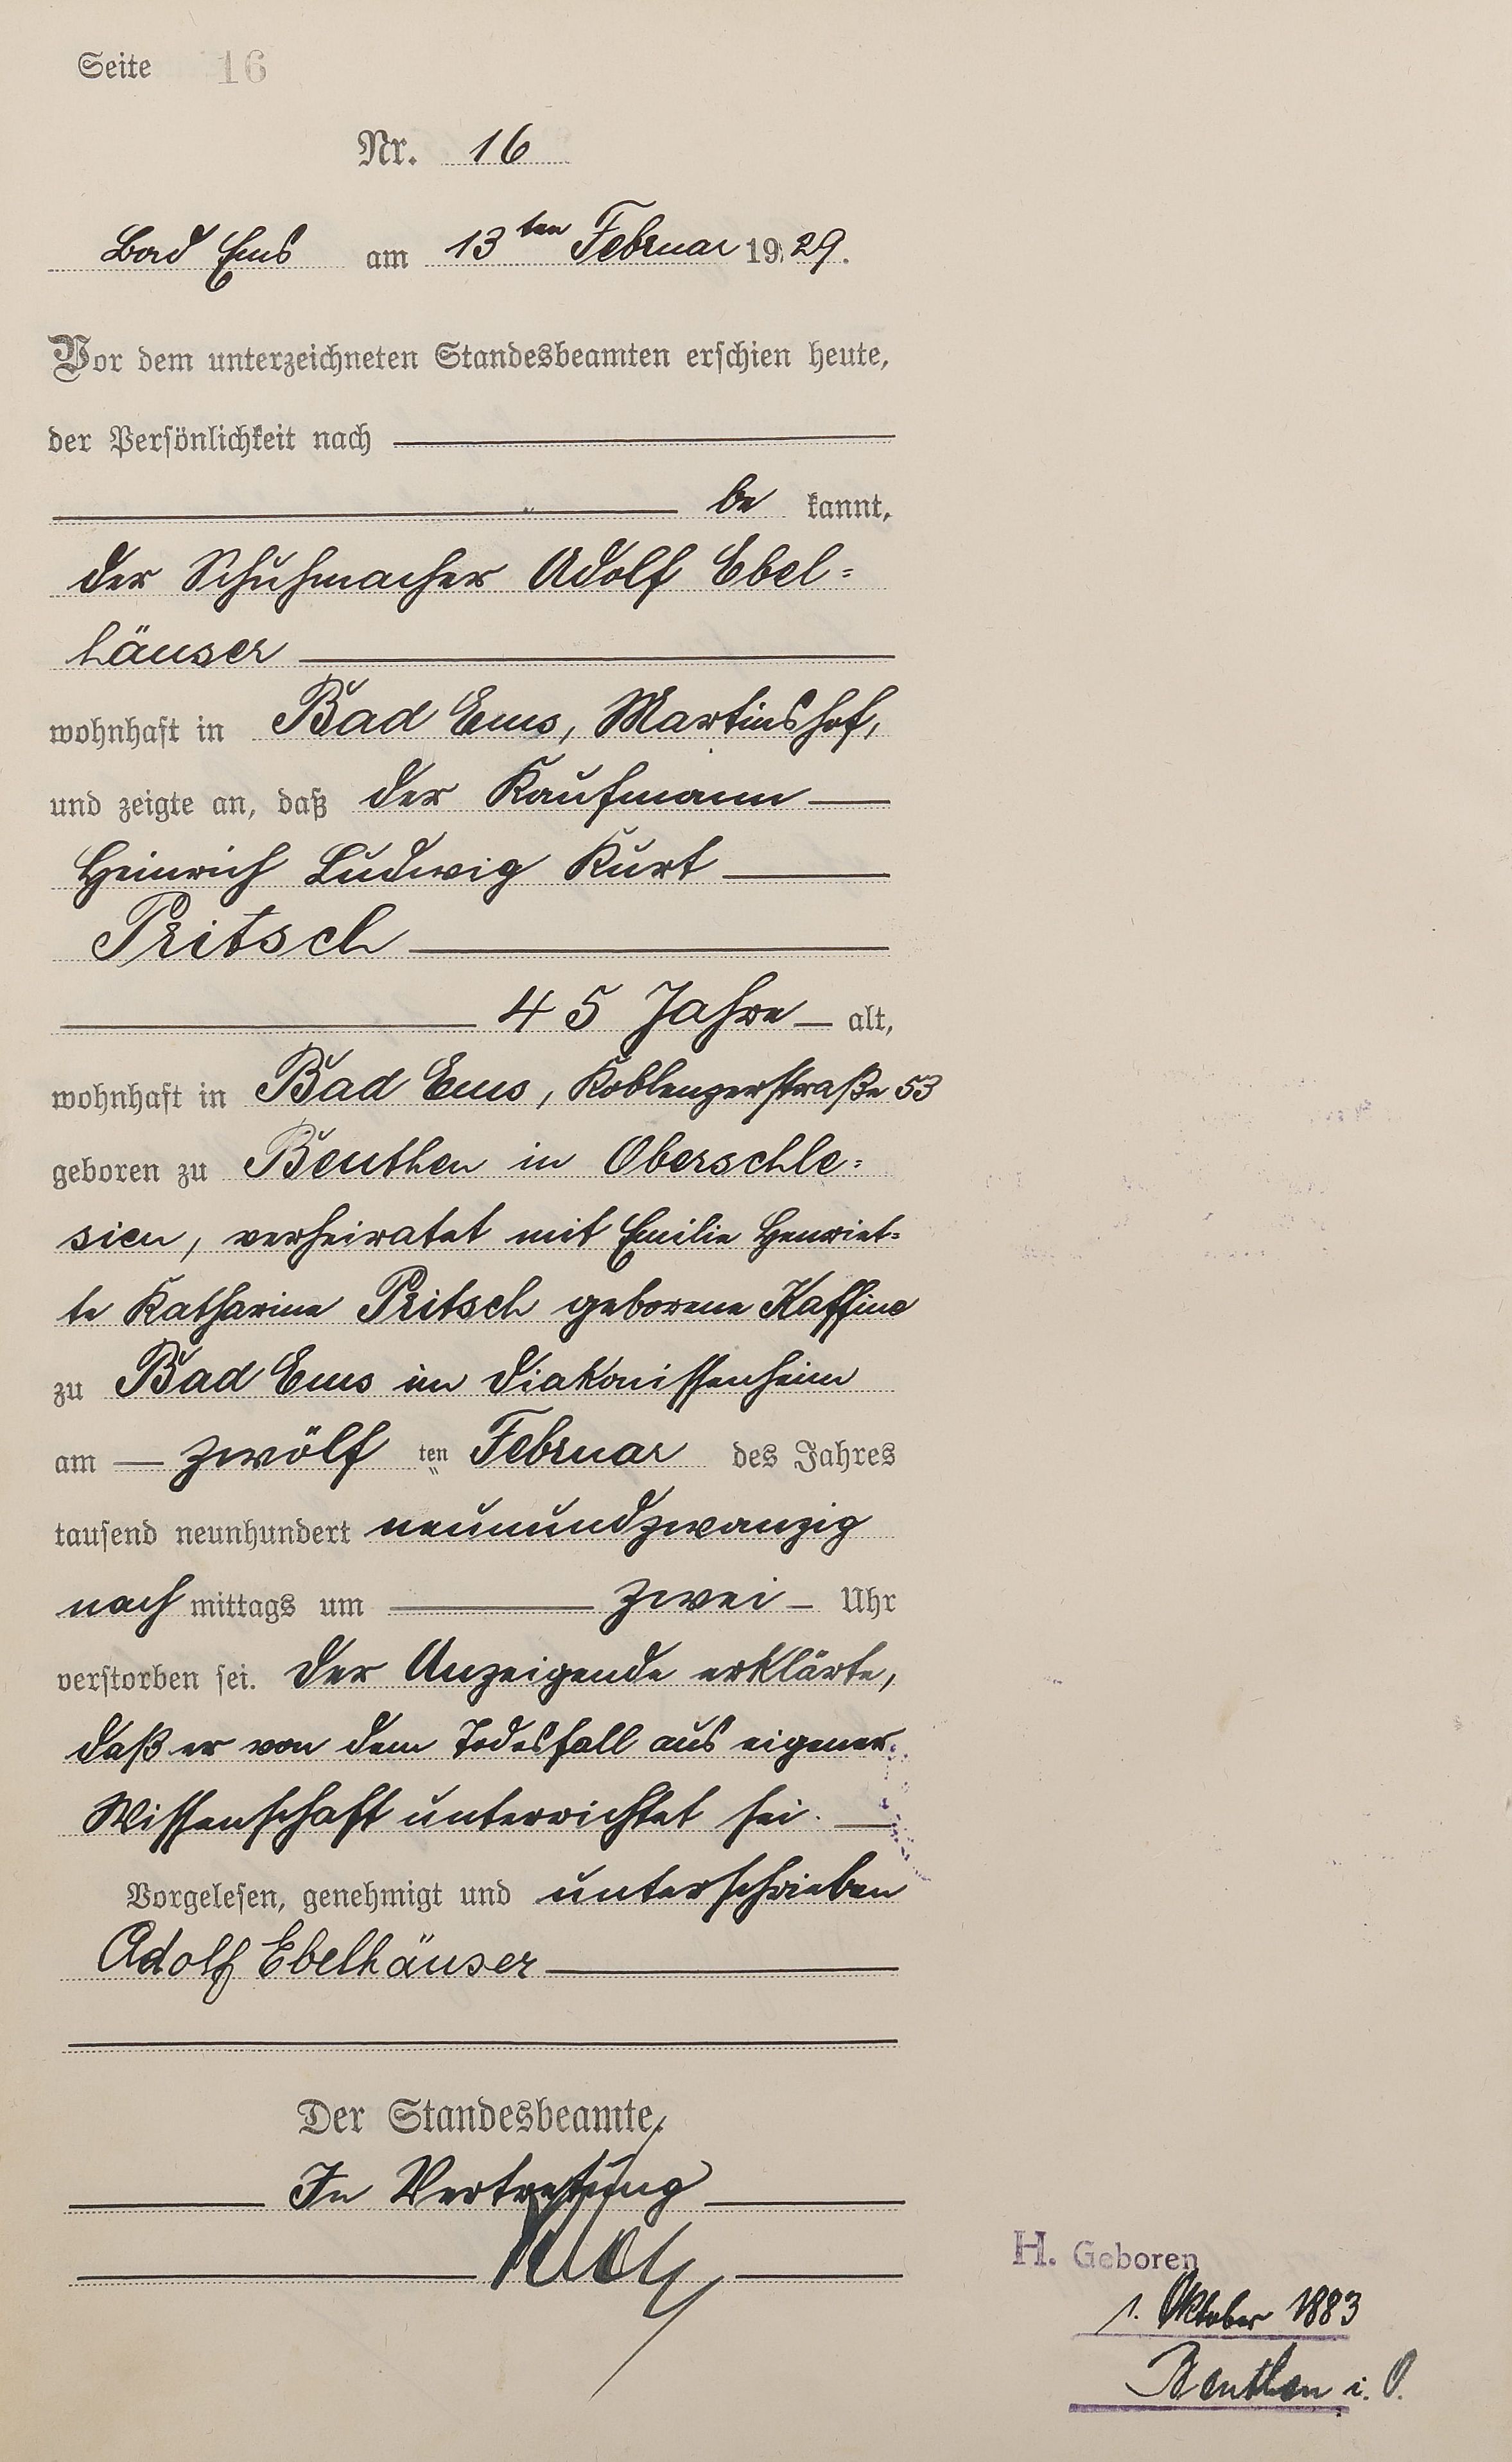 Seite 16
Nr. 16
Bad Ems am 13ten Februar 1929.
Vor dem unterzeichneten Standesbeamten erschien heute,
der Persönlichkeit nach
be kannt,
der Schuhmacher Adolf Ebel=
häuser
wohnhaft in Bad Ems, Martinshof,
und zeigte an, daß der Kaufmann
Heinrich Ludwig Kurt
Pritsch
45 Jahre alt,
wohnhaft in Bad Ems, Koblenzerstraße 53
geboren zu Beuthen in Oberschle=
sien, verheiratet mit Emilie Henriet=
te Katharine Pritsch geborene Kaffine
zu Bad Ems im Diakonissenheim
am zwölf ten Februar des Jahres
tausend neunhundert neunundzwanzig
nach mittags um zwei Uhr
verstorben sei. Der Anzeigende erklärte,
daß er von dem Todesfall aus eigener
Wissenschaft unterrichtet sei.
Vorgelesen, genehmigt und unterschrieben
Adolf Ebelhäuser
Der Standesbeamte.
In Vertretung
H. Geboren
1. Oktober 1883
Beuthen i. O.